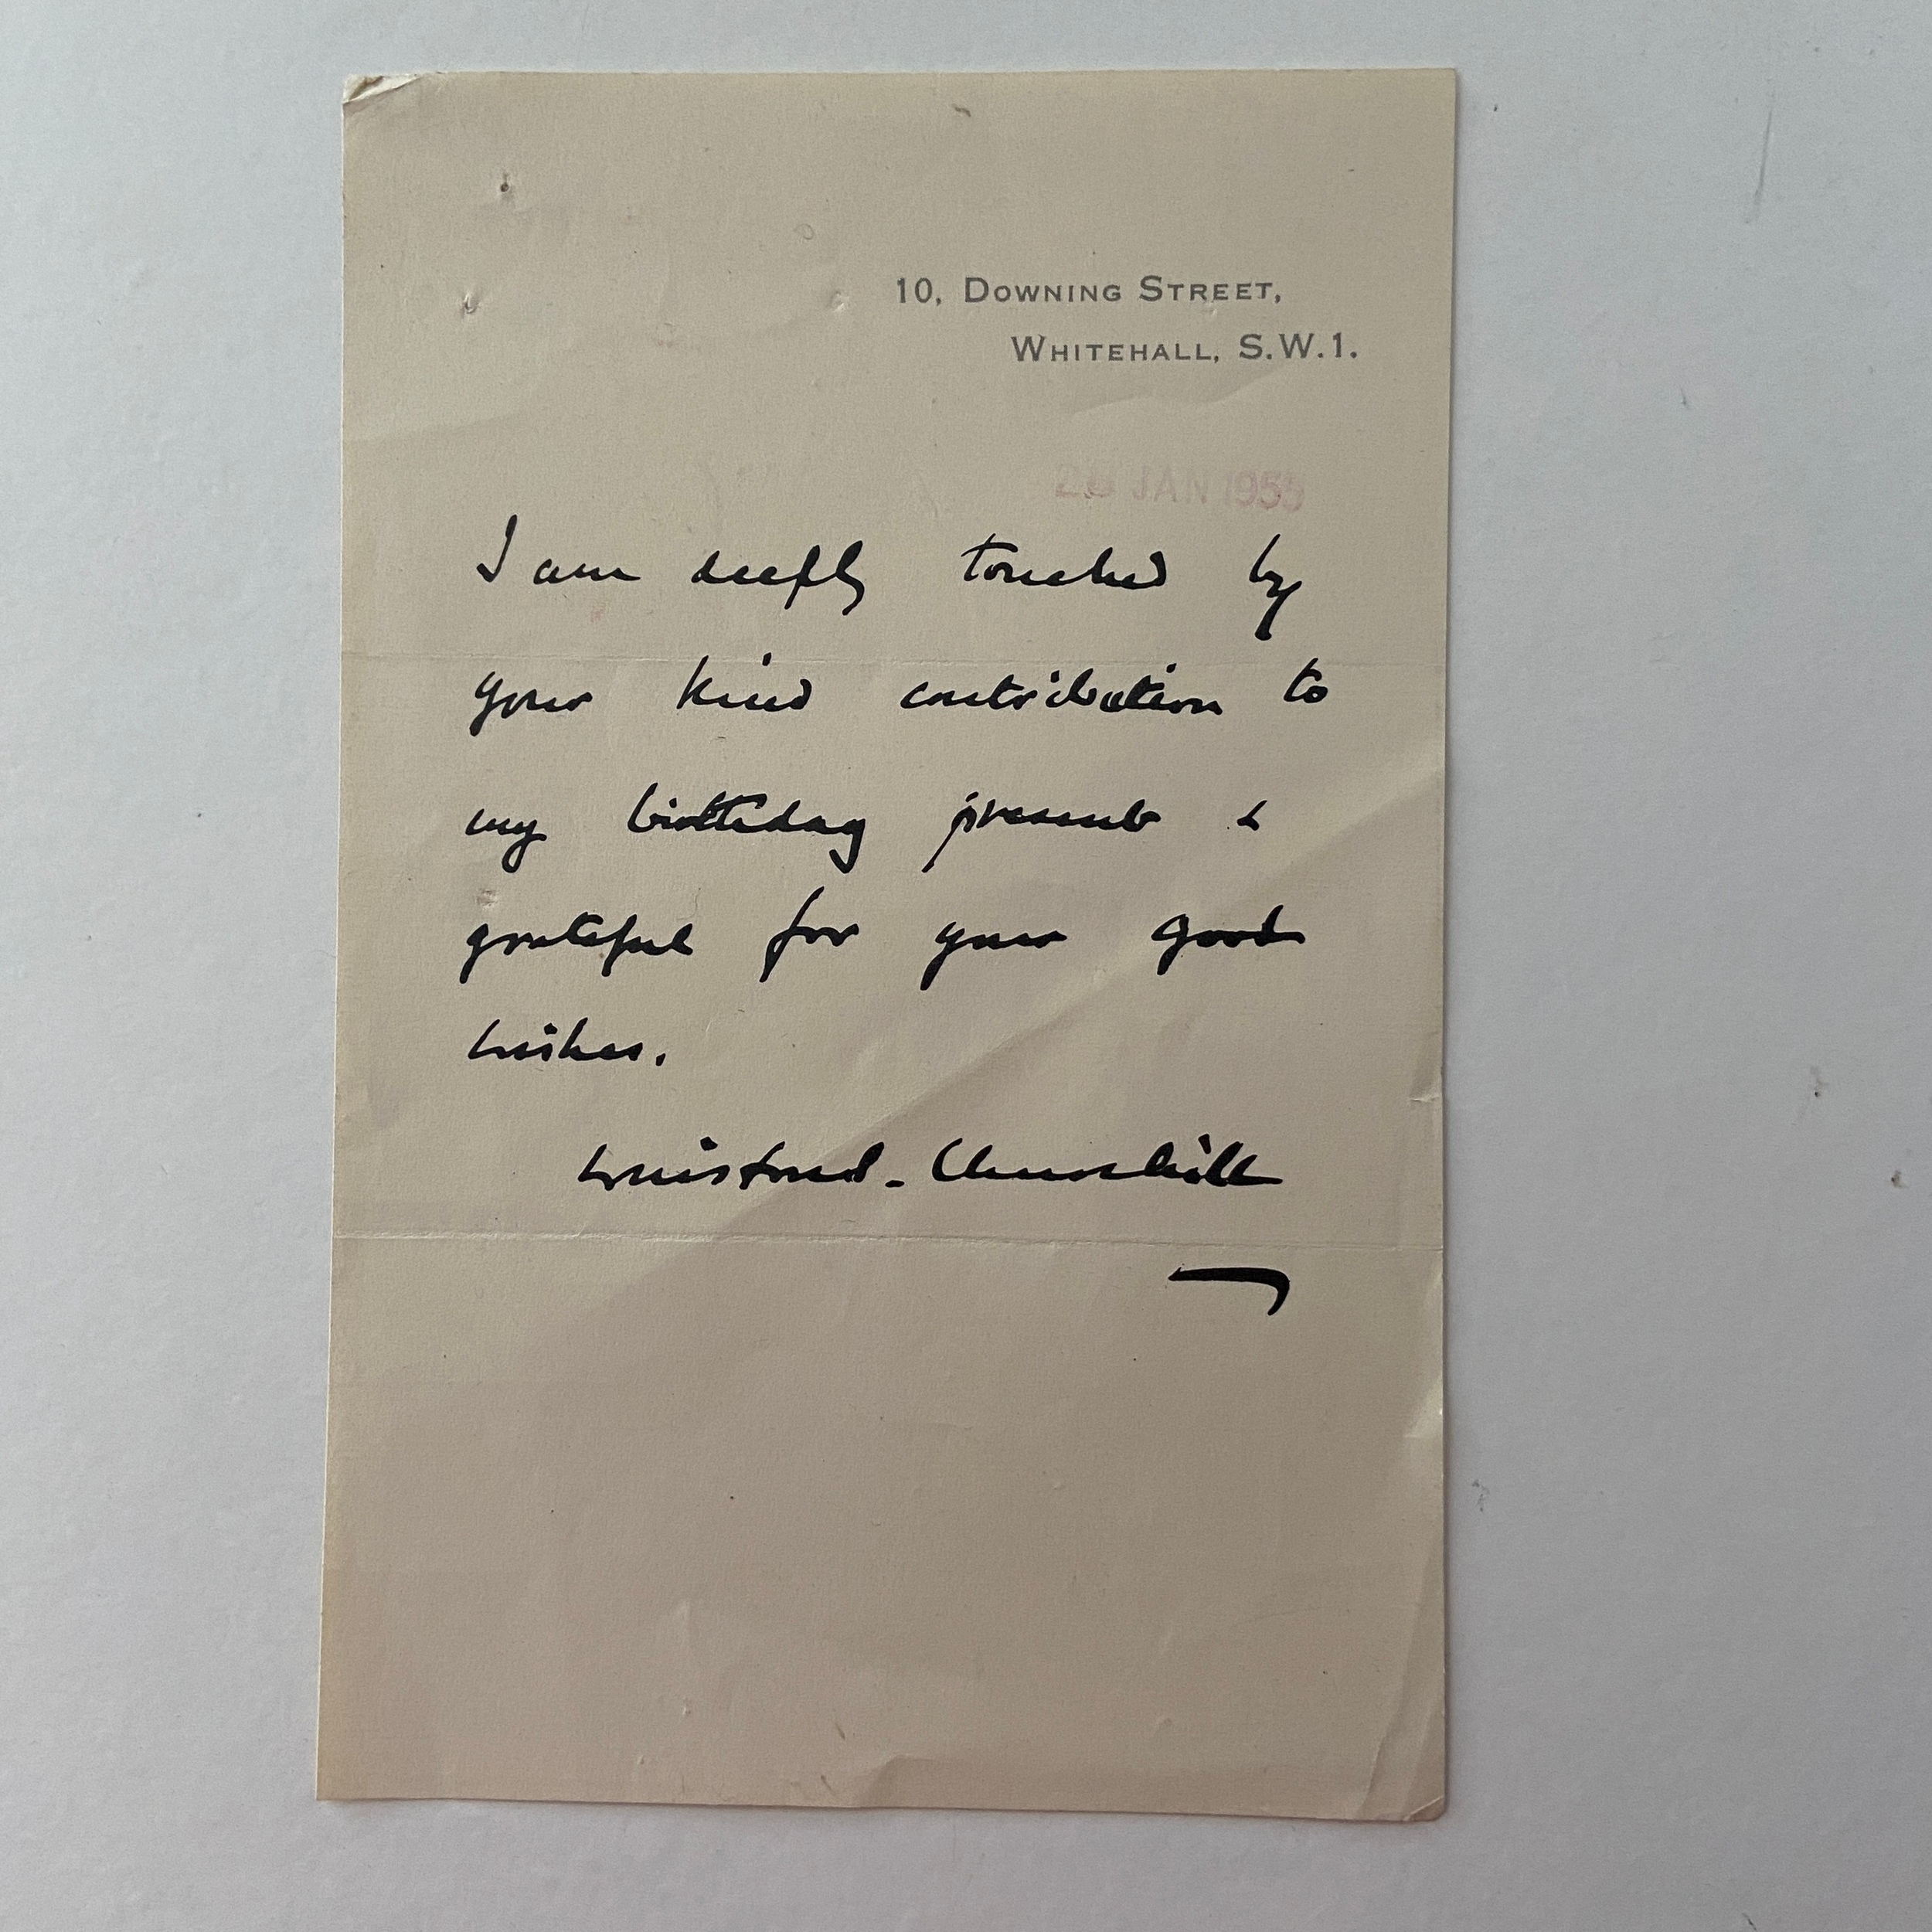 10, DOWNING STREET,
WHITEHALL, S.W.1.
JAN 1955
I am deeply touched by
your kind contribution to
my birthday present &
grateful for your good
wishes.
Winston S. Churchill